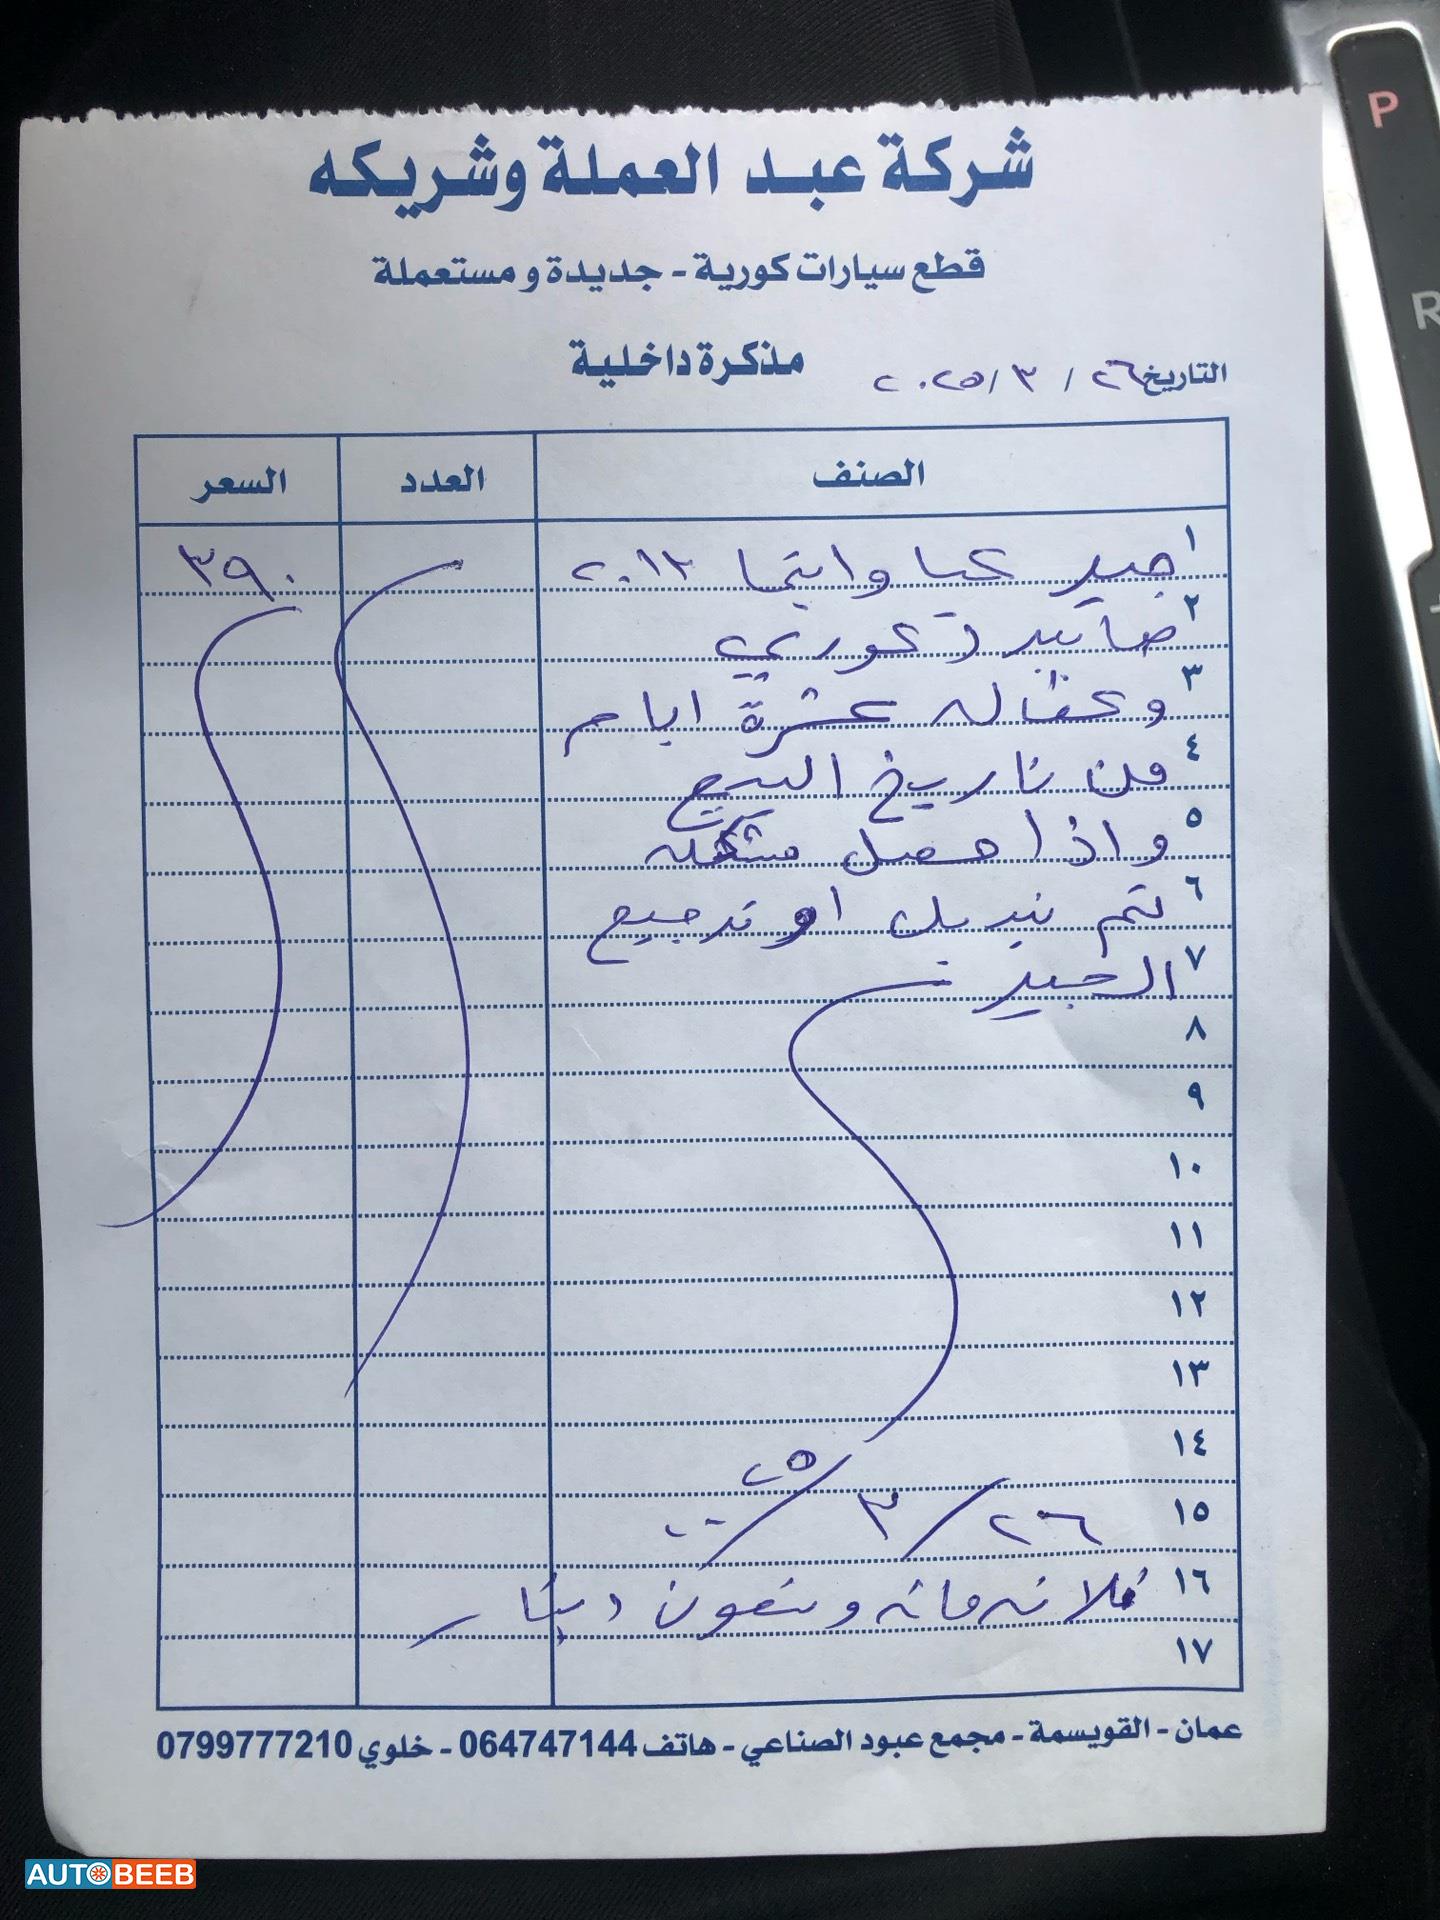 شركة عبد العملة وشريكه
قطع سيارات كورية - جديدة و مستعملة
مذكرة داخلية
التاريخ ٢٦ / ٣ / ٢٠٢٥
الصنف العدد السعر
١ جير كيا اوبتيما ٢٠١٢ ٣٩٠
٢ هايبرد كوري
٣ وكفاله عشرة ايام
٤ من تاريخ البيع
٥ واذا حصل مشكله
٦ يتم تبديل او ترجيع
٧ الجير
٨
٩
١٠
١١
١٢
١٣
١٤
١٥ ٢٦ / ٣ / ٢٠٢٥
١٦ ثلاثمائه وتسعون دينار
١٧
عمان - القويسمة - مجمع عبود الصناعي - هاتف 064747144 - خلوي 0799777210
P
R
AUTOBEEB